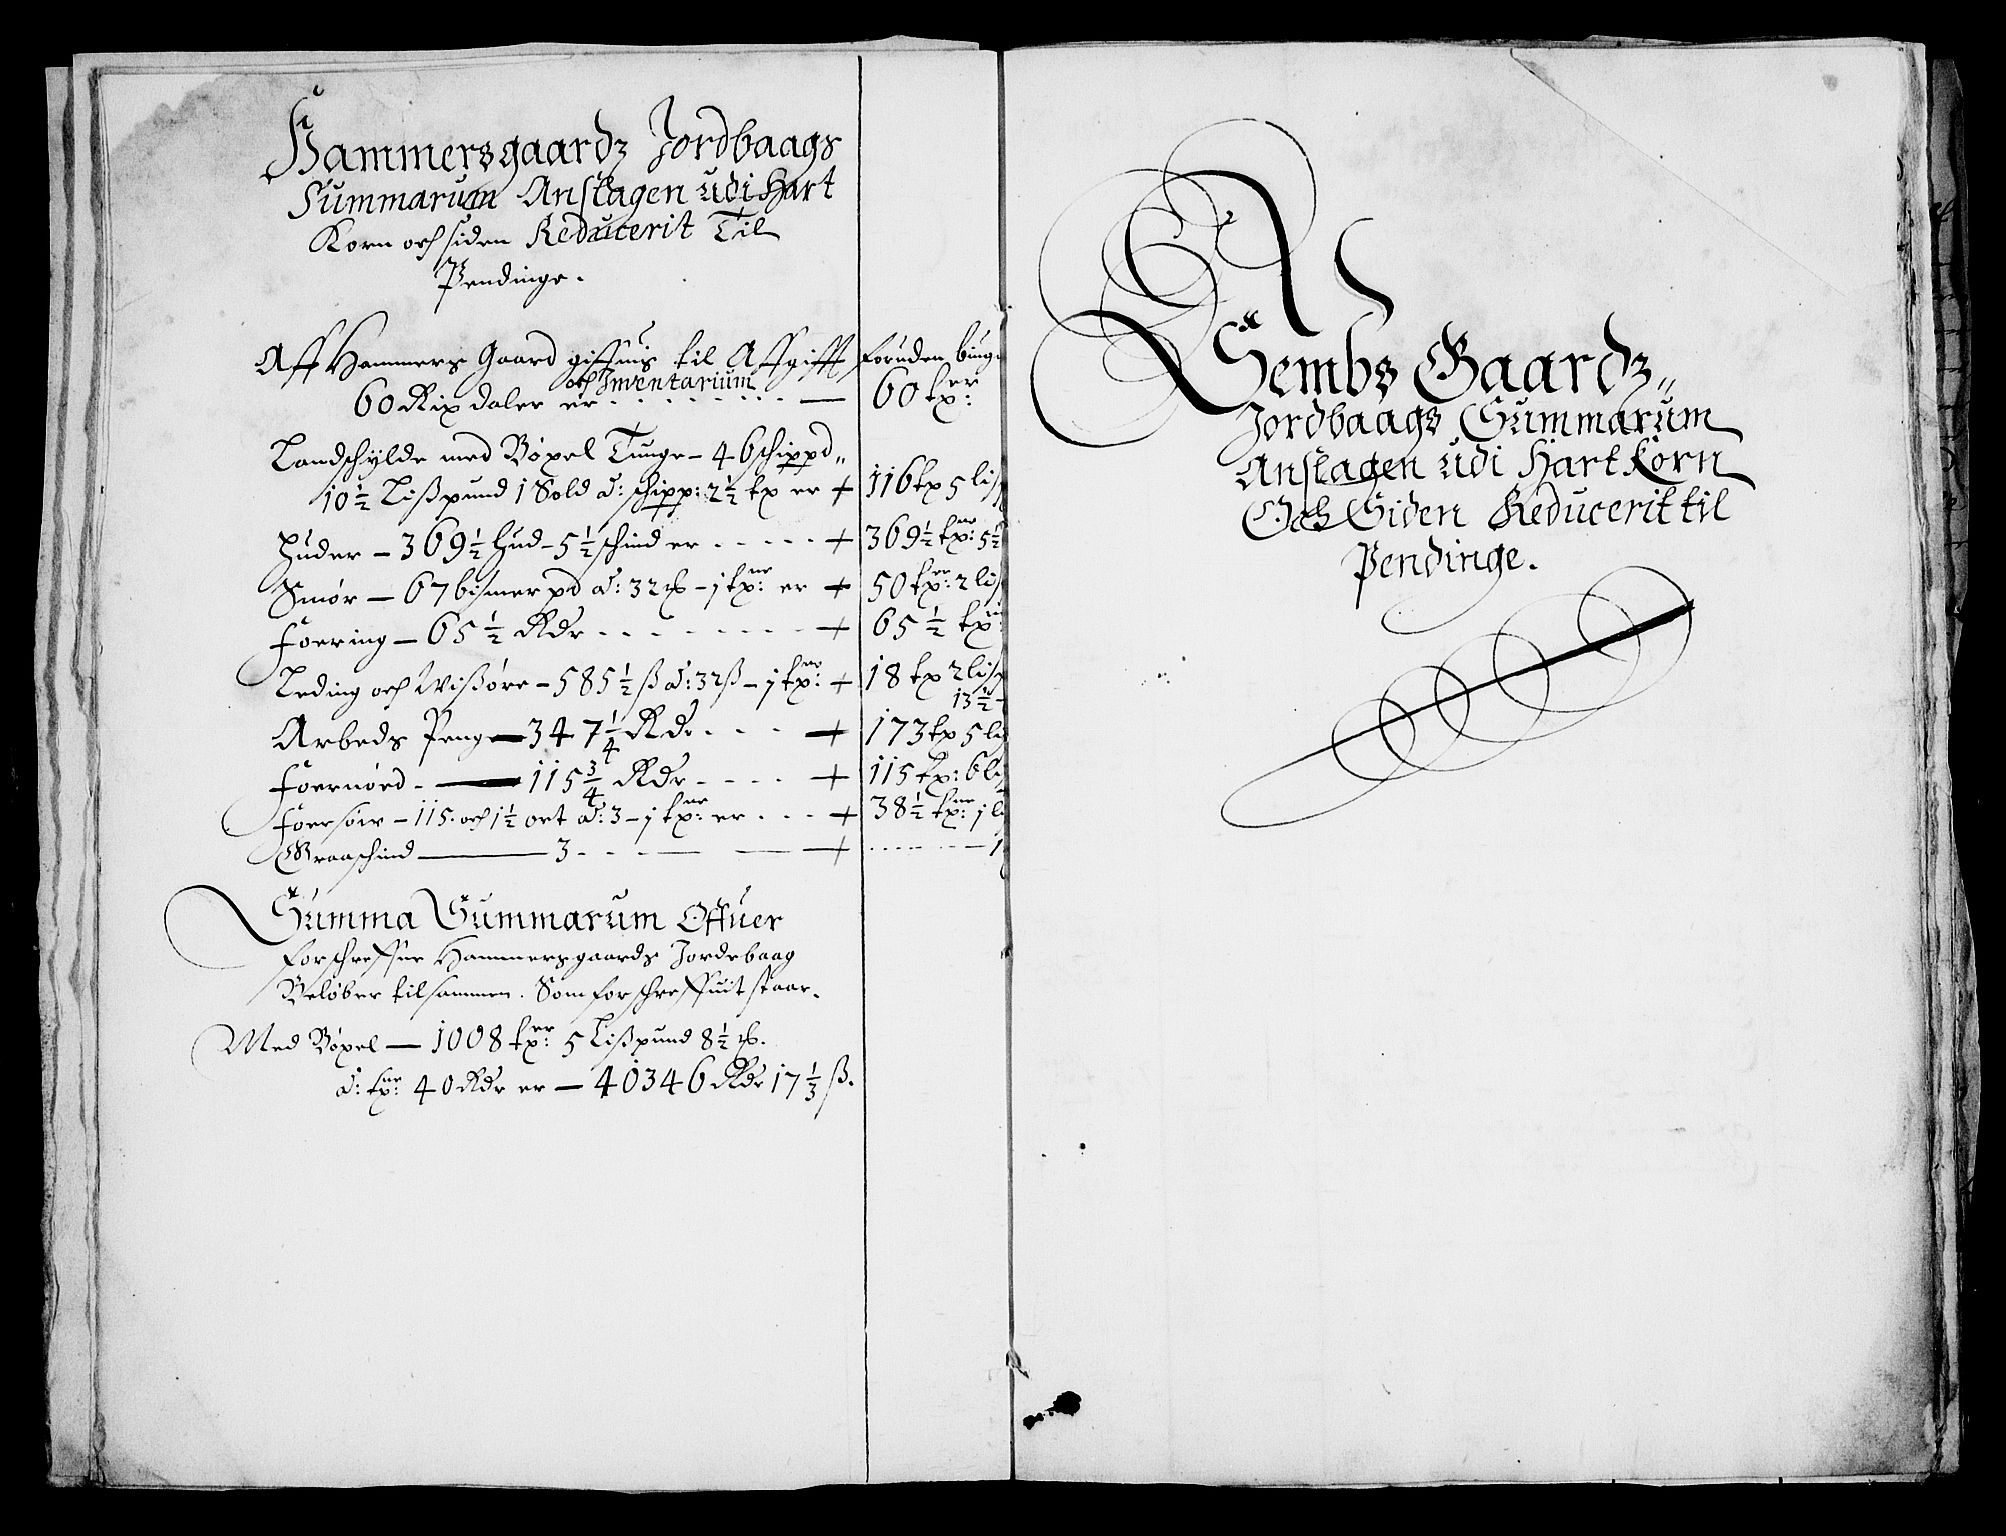 Hammersgaardz Jordbaags
Summarum Anslagen udi Hart
Korn och siden Reducerit Til
Pendinge.
Aff Hammers Gaard giffuis til Affgifft foruden biug
och Inventarium
60 Rix daler er - - - - - - - - — 60 tx:er
Landschylde med Bøxel Tunge - 46 schippd„
10½ Lißpund 1 Sold a: schipp: 2½ tx er + 116 tx 5 liß
Huder — 369½ Hud - 5½ schind er - - - - - + 369½ tx:er 5½
Smør — 67 bismer pd a: 32 ℔ - j tx:er er + 50 tx:er 2 liß
Foering — 65½ Rdr - - - - - - - - + 65½ tx:er
Leding och Wißøre - 585½ ß a: 32 ß - j tx:er + 18 tx 2 liß
13½ -
Arbeds Peng — 347¼ Rdr - - - - + 173 tx 5 li
Foernød - — 115¾ Rdr - - - - + 115 tx: 6 li
Foersøw - 115. och 1½ ort a: 3 - j tx:er er - - - + 38½ tx:er j li
Graaschind — 3 - - - — — + - - - - - — 1
Summa Summarum Offuer
forschreffne Hammersgaards Jordebaag
Beløber tilsammen. Som forschreffuit staar.
Med Bøxel — 1008 tx:er 5 Lißpund 8½ ℔.
a: tx:er 40 Rdr er — 40346 Rdr 17⅓ ß.
Sembs Gaardz„
Jordbaags Summarum
Anslagen udi Hart Korn
Och Siden Reducerit til
Pendinge.